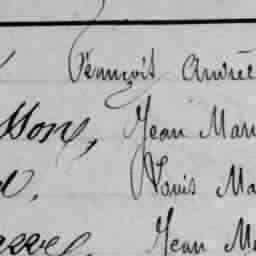 François André
sson, Jean Mari
Louis Ma
Jean Ma